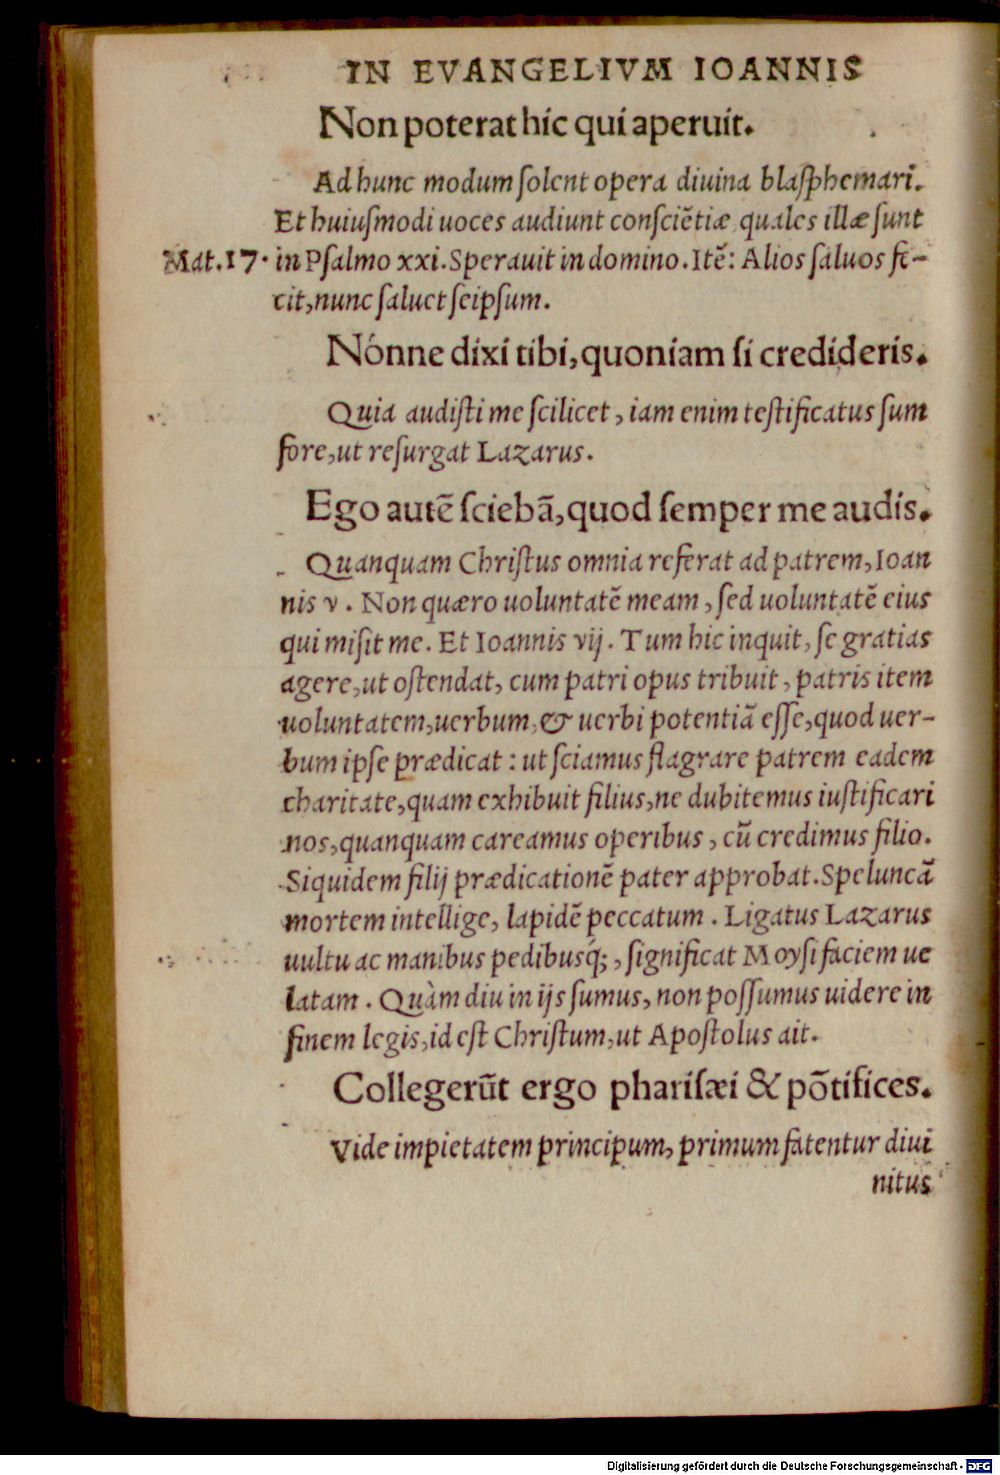 IN EVANGELIVM IOANNIS
Non poterat hic qui aperuit.
Ad hunc modum ſolent opera diuina blaſphemari.
Et huiuſmodi uoces audiunt conſciẽtiæ quales illæ ſunt
Mat. 17. in Pſalmo xxi. Sperauit in domino. Itẽ: Alios ſaluos fe-
cit, nunc ſaluet ſeipſum.
Nónne dixi tibi, quoniam ſi credideris.
Quia audiſti me ſcilicet, iam enim teſtificatus ſum
fore, ut reſurgat Lazarus.
Ego autẽ ſciebã, quod ſemper me audis.
Quanquam Chriſtus omnia referat ad patrem, Ioan
nis v. Non quæro uoluntatẽ meam, ſed uoluntatẽ eius
qui miſit me. Et Ioannis vij. Tum hic inquit, ſe gratias
agere, ut oſtendat, cum patri opus tribuit, patris item
uoluntatem, uerbum, & uerbi potentiã eſſe, quod uer-
bum ipſe prædicat: ut ſciamus flagrare patrem eadem
charitate, quam exhibuit filius, ne dubitemus iuſtificari
nos, quanquam careamus operibus, cũ credimus filio.
Siquidem filij prædicationẽ pater approbat. Speluncã
mortem intellige, lapidẽ peccatum. Ligatus Lazarus
uultu ac manibus pedibusq́;, ſignificat Moyſi faciem ue
latam. Quàm diu in ijs ſumus, non poſſumus uidere in
finem legis, id eſt Chriſtum, ut Apoſtolus ait.
Collegerũt ergo phariſæi & põtifices.
Vide impietatem principum, primum fatentur diui
nitus
Digitalisierung gefördert durch die Deutsche Forschungsgemeinschaft - DFG